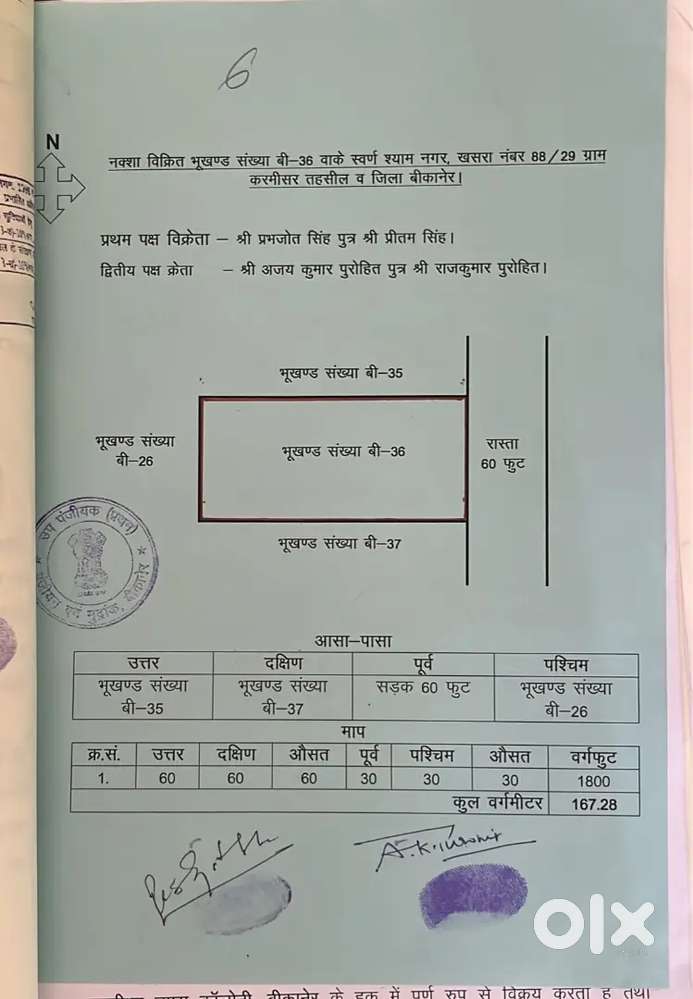 6
N
नक्शा विक्रित भूखण्ड संख्या बी–36 वाके स्वर्ण श्याम नगर, खसरा नंबर 88/29 ग्राम
करमीसर तहसील व जिला बीकानेर।
प्रथम पक्ष विक्रेता – श्री प्रभजोत सिंह पुत्र श्री प्रीतम सिंह।
द्वितीय पक्ष क्रेता – श्री अजय कुमार पुरोहित पुत्र श्री राजकुमार पुरोहित।
भूखण्ड संख्या बी–35
भूखण्ड संख्या
बी–26
भूखण्ड संख्या बी–36
रास्ता
60 फुट
भूखण्ड संख्या बी–37
उप पंजीयक (प्रथम)
पंजीयन एवं मुद्रांक, बीकानेर
आसा–पासा
उत्तर दक्षिण पूर्व पश्चिम
भूखण्ड संख्या बी–35 भूखण्ड संख्या बी–37 सड़क 60 फुट भूखण्ड संख्या बी–26
माप
क्र.सं. उत्तर दक्षिण औसत पूर्व पश्चिम औसत वर्गफुट
1. 60 60 60 30 30 30 1800
कुल वर्गमीटर 167.28
A.K. Purohit
olx
बीकानेर के हक में पूर्ण रुप से विक्रय करता है तथा